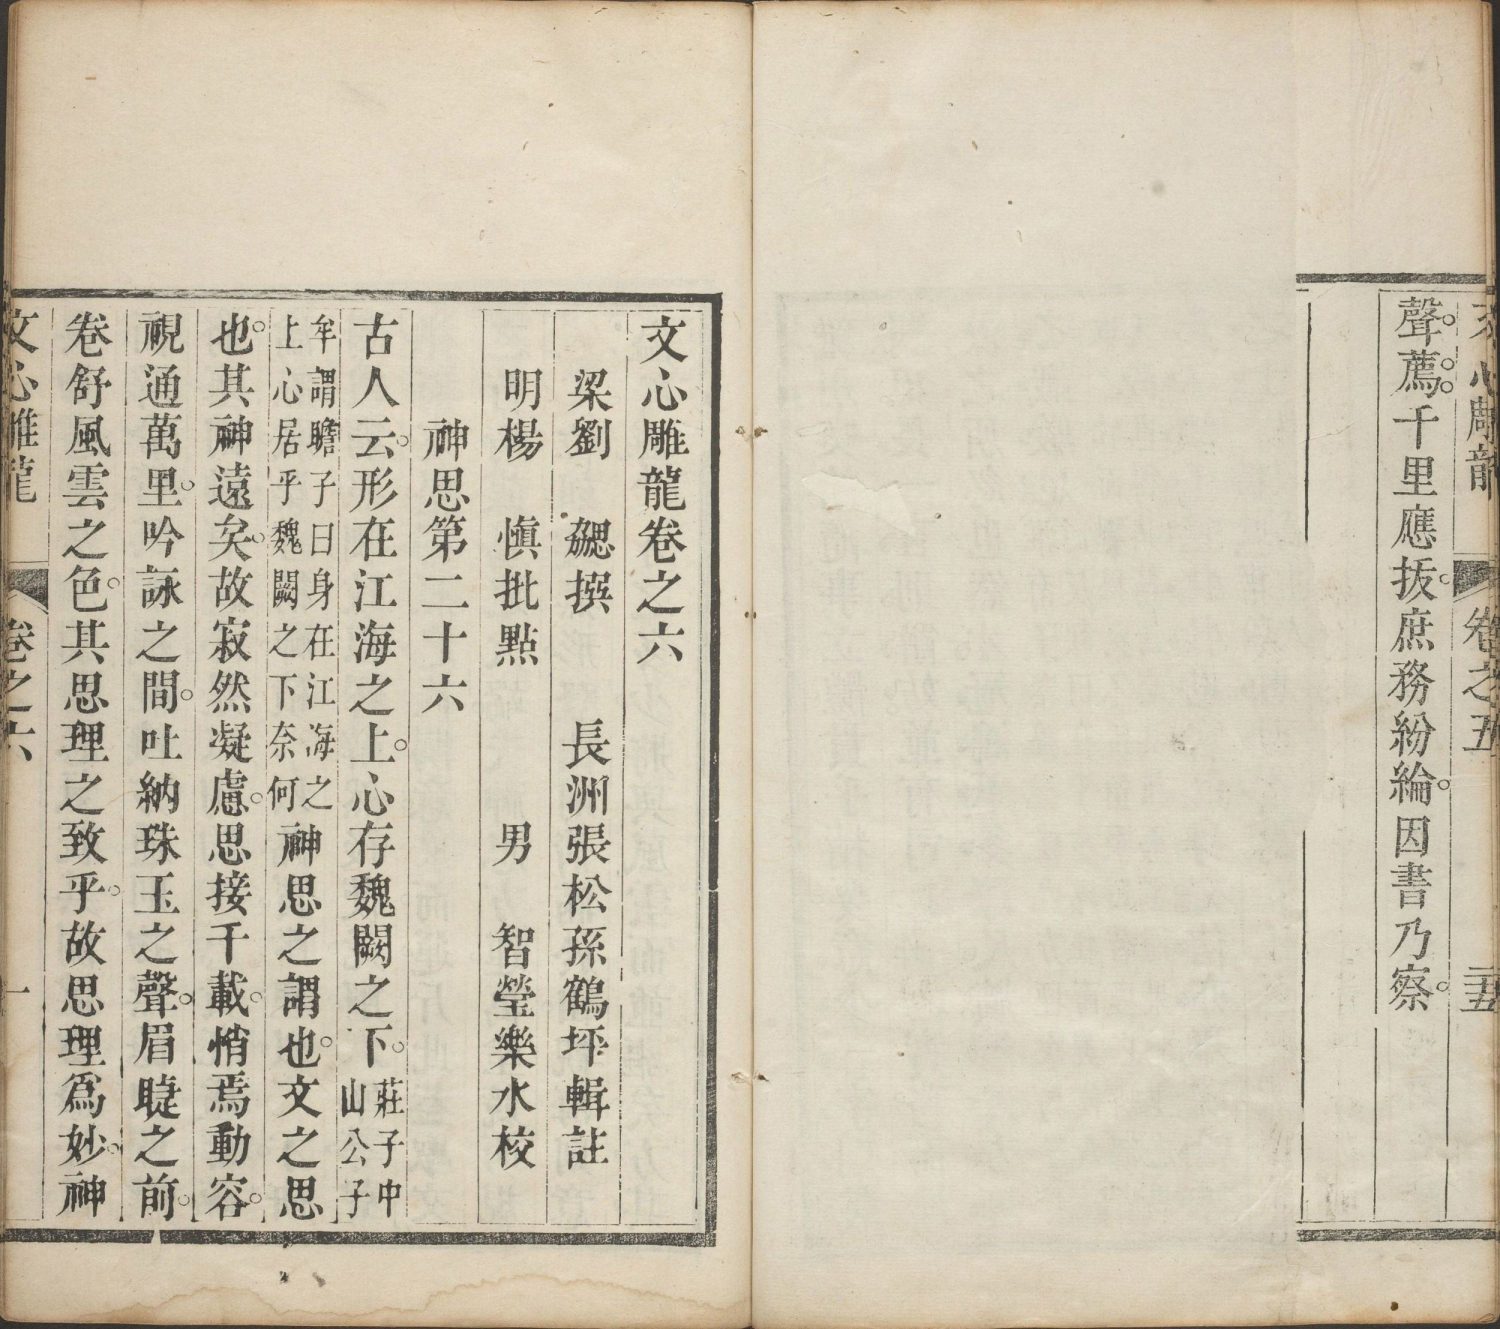 文心雕龍 卷之五 二十五
聲薦千里應拔庶務紛綸因書乃察
文心雕龍卷之六
梁劉勰撰 長洲張松孫鶴坪輯註
明楊慎批點 男智瑩樂水校
神思第二十六
古人云形在江海之上心存魏闕之下莊子中山公子
牟謂瞻子曰身在江海之上心居乎魏闕之下奈何神思之謂也文之思
也其神遠矣故寂然凝慮思接千載悄焉動容
視通萬里吟詠之間吐納珠玉之聲眉睫之前
卷舒風雲之色其思理之致乎故思理為妙神
文心雕龍 卷之六 一